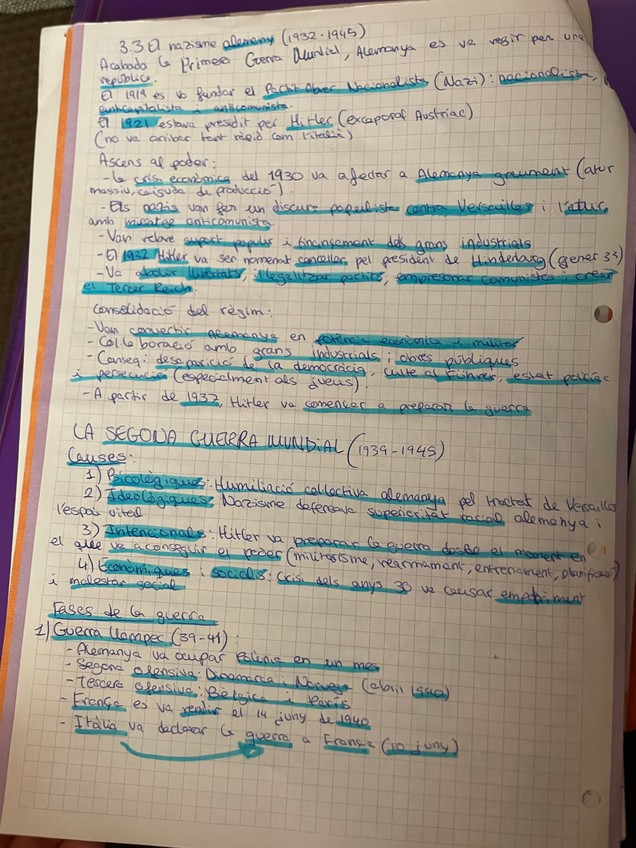 3.3 El nazisme alemany (1932-1945)
Acabada la Primera Guerra Mundial, Alemanya es va regir per una
república.
El 1919 es va fundar el Partit Obrer Nacionalista (Nazi): nacionalista,
anticapitalista i anticomunista.
El 1921 estava presidit per Hitler (excaporal Austríac)
(no va arribar tant ràpid com l'italià)
Ascens al poder:
- La crisi econòmica del 1930 va afectar a Alemanya greument (atur
massiu, caiguda de producció).
- Els nazis van fer un discurs populista contra Versailles i l'atur,
amb missatge anticomunista
- Van rebre suport popular i finançament dels grans industrials
- El 1932 Hitler va ser nomenat canceller pel president de Hindenburg (gener 33)
- Va abolir llibertats, il·legalitzar partits, empresonar comunistes i crear
el Tercer Reich
Consolidació del règim:
- Van convertir Alemanya en potència econòmica i militar
- Col·laboració amb grans industrials i obres públiques
- Conseq: desaparició de la democràcia, culte al Führer, estat policiac
i persecució (especialment als jueus).
- A partir de 1937, Hitler va començar a preparar la guerra
LA SEGONA GUERRA MUNDIAL (1939-1945)
Causes:
1) Psicològiques: Humiliació col·lectiva alemanya pel tractat de Versailles
2) Ideològiques: Nazisme defensava superioritat racial alemanya i
l'espai vital
3) Intencionals: Hitler va preparar la guerra desde el moment en
el que va aconseguir el poder (militarisme, rearmament, entrenament,
4) Econòmiques i socials: Crisi dels anys 30 va causar empobriment
i malestar social
Fases de la guerra
1) Guerra llampec (39-41):
- Alemanya va ocupar Polònia en un mes
- Segona ofensiva: Dinamarca i Noruega (abril 1940)
- Tercera ofensiva: Bèlgica i París
- França es va rendir el 14 juny de 1940
- Itàlia va declarar la guerra a França (10 juny)